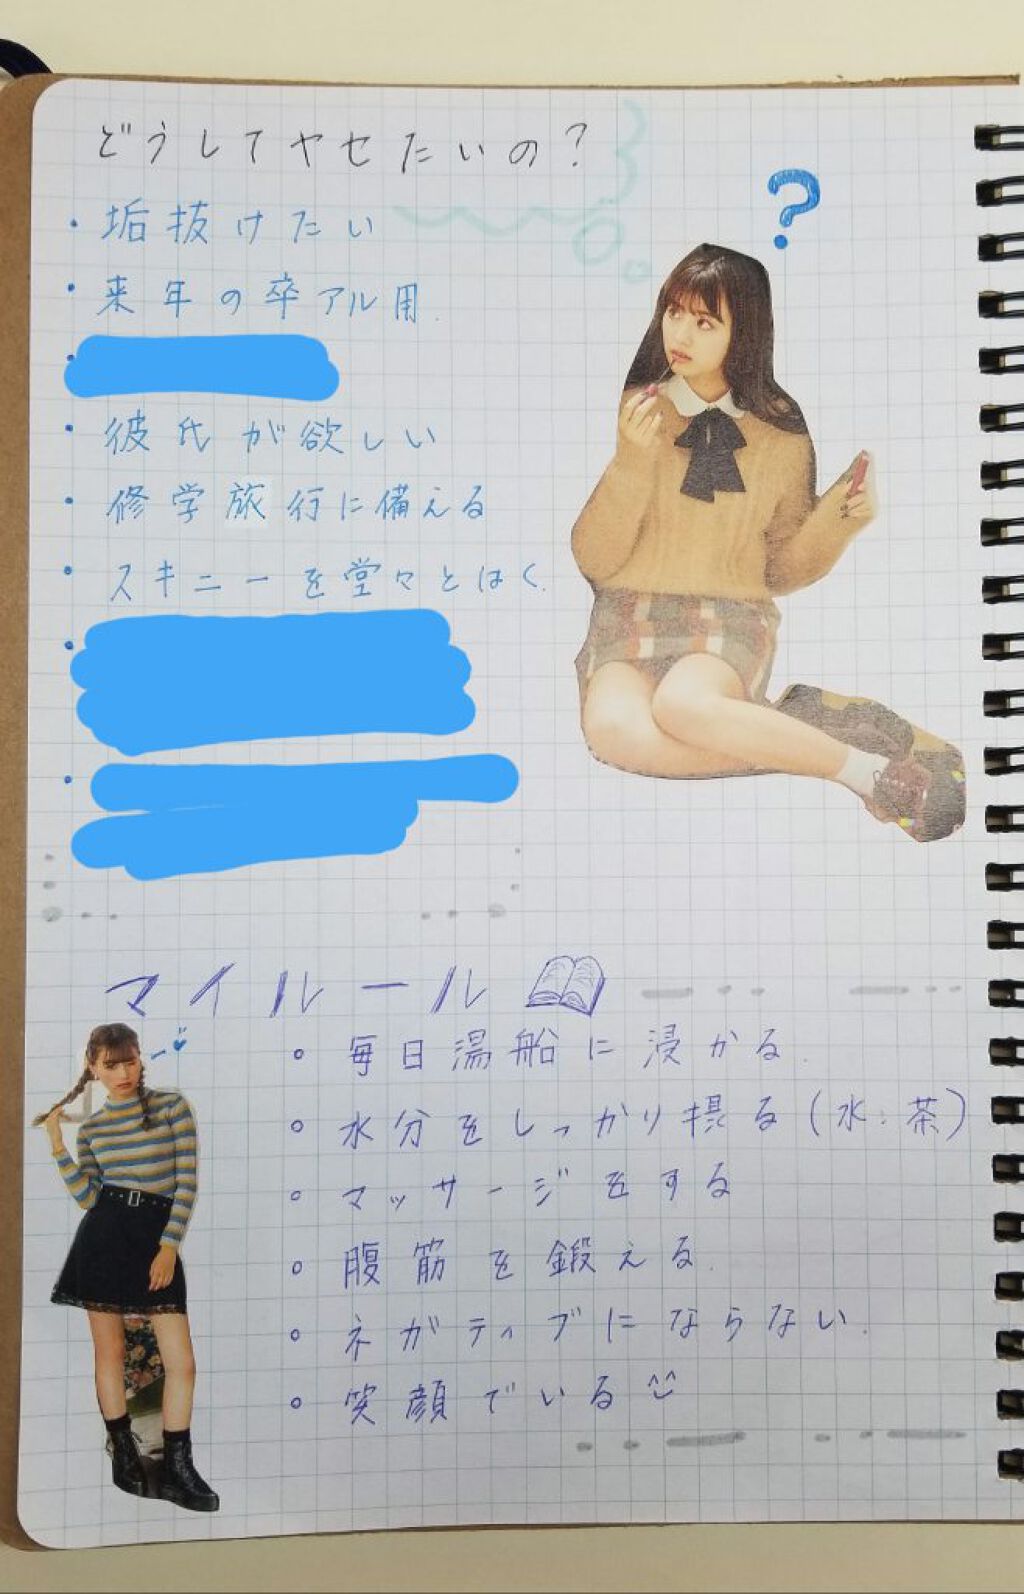 どうしてヤセたいの?
・垢抜けたい
・来年の卒アル用.
・彼氏が欲しい
・修学旅行に備える
・スキニーを堂々とはく.
?
マイルール
○毎日湯船に浸かる.
○水分をしっかり摂る(水・茶)
○マッサージをする
○腹筋を鍛える.
○ネガティブにならない.
○笑顔でいる^^